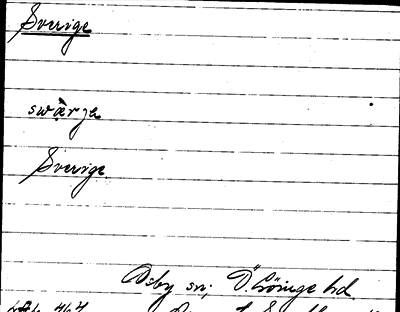 Sverige
swärje
Sverige.
Osby sn; Ö. Göinge hd.